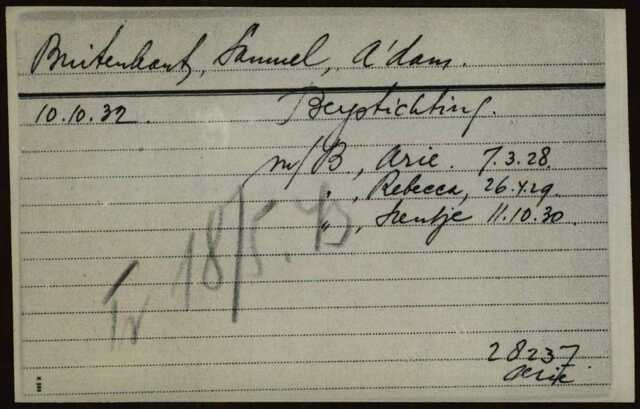 Buitenkant, Samuel, A'dam.
10.10.32. Bergstichting.
m/ B, Arie. 7.3.28.
" , Rebecca, 26.4.29.
" , Leentje 11.10.30.
Tr 18/5.43
28237
Arie